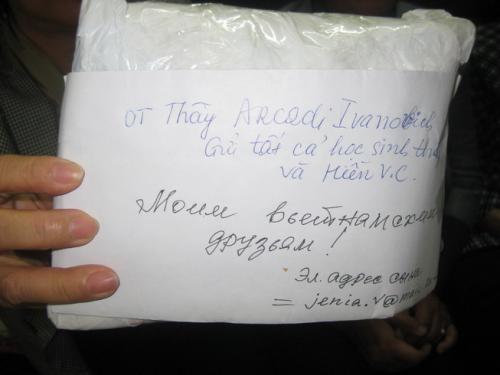 от Thầy Arcadi Ivanovich
Gửi tất cả học sinh
và Hiền V.C.
Моим вьетнамским
друзьям!
Эл. адрес сына
= jenia.v@mail